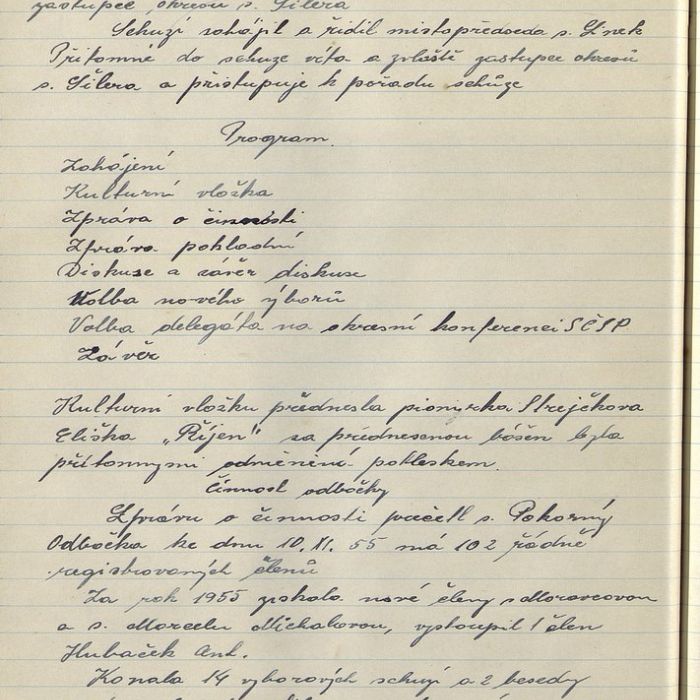 zástupce okresu s. Šilera
Schuzi zahájil a řídil mistopředseda s. Linek
Přítomné do schuze vítá a zvláště zástupce okresů
s. Šilera a přistupuje k pořadu schůze
Program.
Zahájení
Kulturní vložka
Zpráva o činnosti
Zpráva pokladní
Diskuse a závěr diskuse
Volba nového výborů
Volba delegáta na okresní konferenci SČSP
Závěr
Kulturní vložku přednesla pionyrka Strejčkova
Eliška „Říjen" za přednesenou báseň byla
přítomnymi odměněna potleskem.
Činnost odbočky
Zprávu o činnosti přečetl s. Pokorný
Odbočka ke dnu 10. XI. 55 má 102 řádně
registrovaných členů
Za rok 1955 získala nové členy s Moravcovou
a s. Marcelu Michalovou, vystoupil 1 člen
Hubaček Ant.
Konala 14 vyborových schuzí a 2 besedy